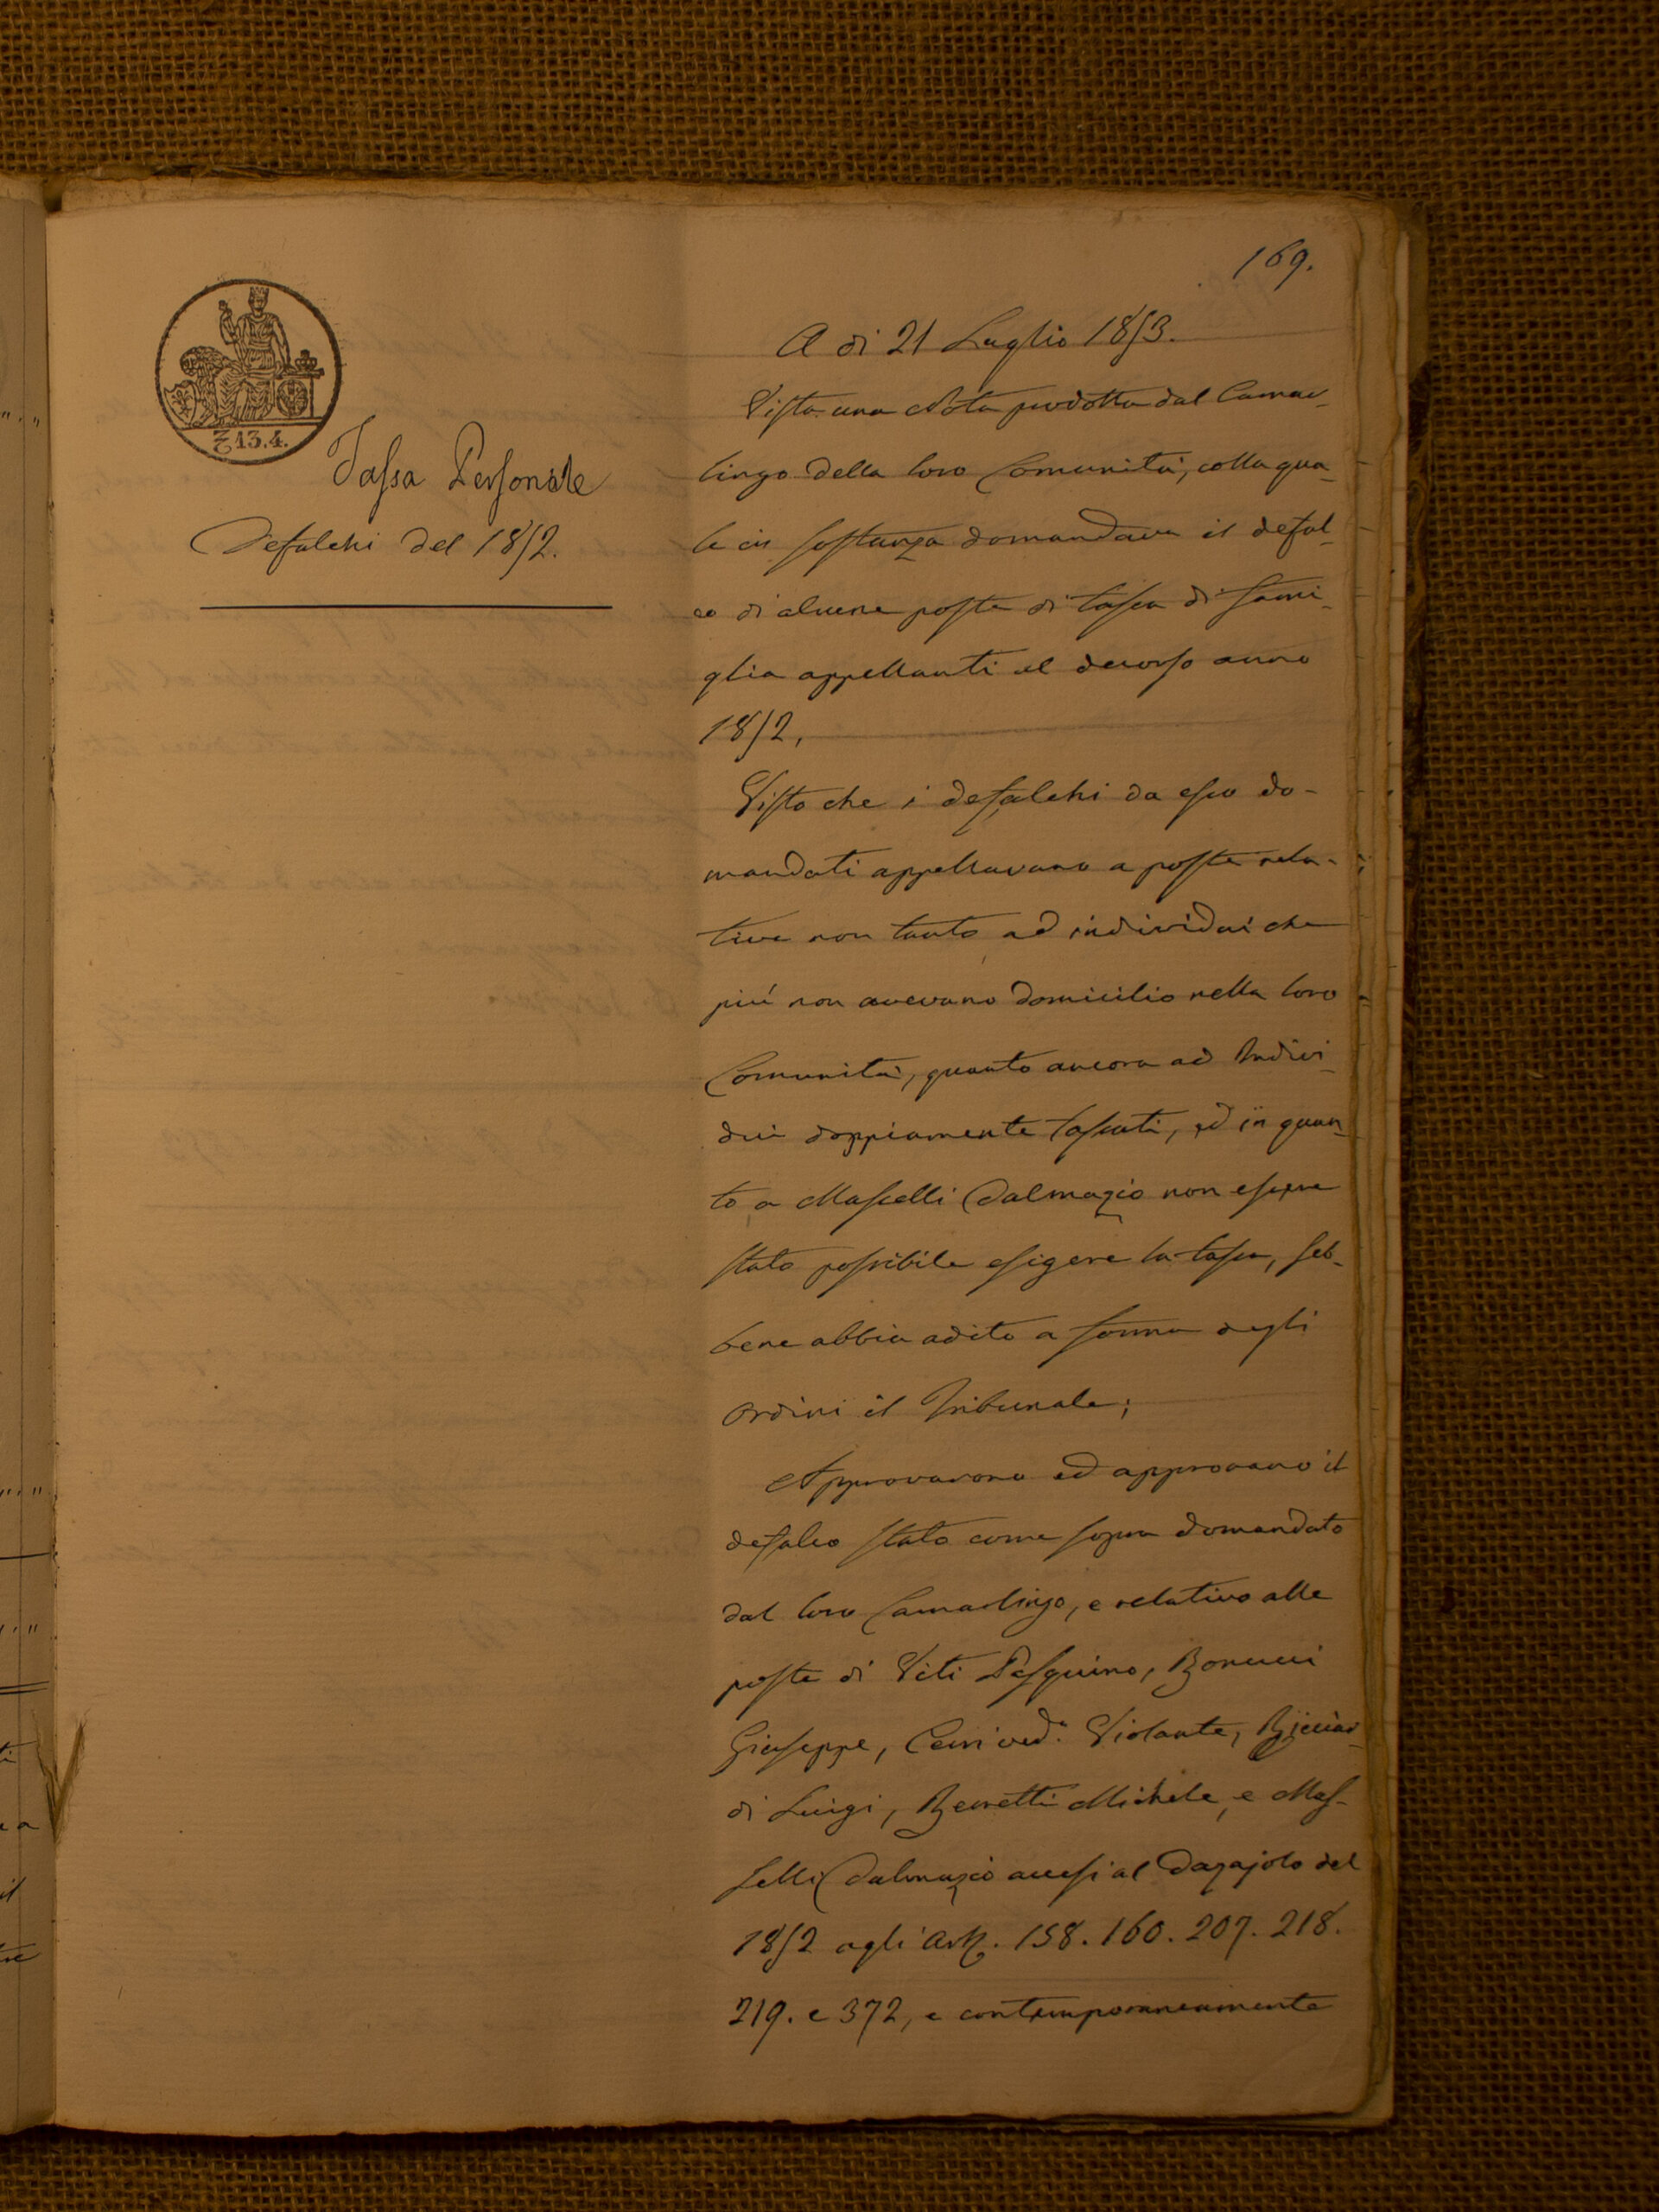 169.
13.4.
Tassa Personale
Defalchi del 1852.
A di 21 Luglio 1853.
Vista una Nota prodotta dal Camar-
lingo della loro Comunità, colla qua-
le in sostanza domandava il defal-
co di alcune poste di tassa di fami-
glia appellanti al decorso anno
1852,
Visto che i defalchi da esso do-
mandati appellavano a poste rela-
tive non tanto ad individui che
più non avevano domicilio nella loro
Comunità, quanto ancora ad Indivi-
dui doppiamente tassati, ed in quan-
to a Masselli Dalmazio non essere
stato possibile esigere la tassa, seb-
bene abbia adito a forma degli
Ordini il Tribunale;
Approvarono ed approvano il
defalco stato come sopra domandato
dal loro Camarlingo, e relativo alle
poste di Viti Pasquino, Bonucci
Giuseppe, ved.a Violante,
di Luigi, Michele, e Mas-
selli Dalmazio accesi al Dazajolo del
1852 agli Art. 158. 160. 207. 218.
219. e 372, e contemporaneamente